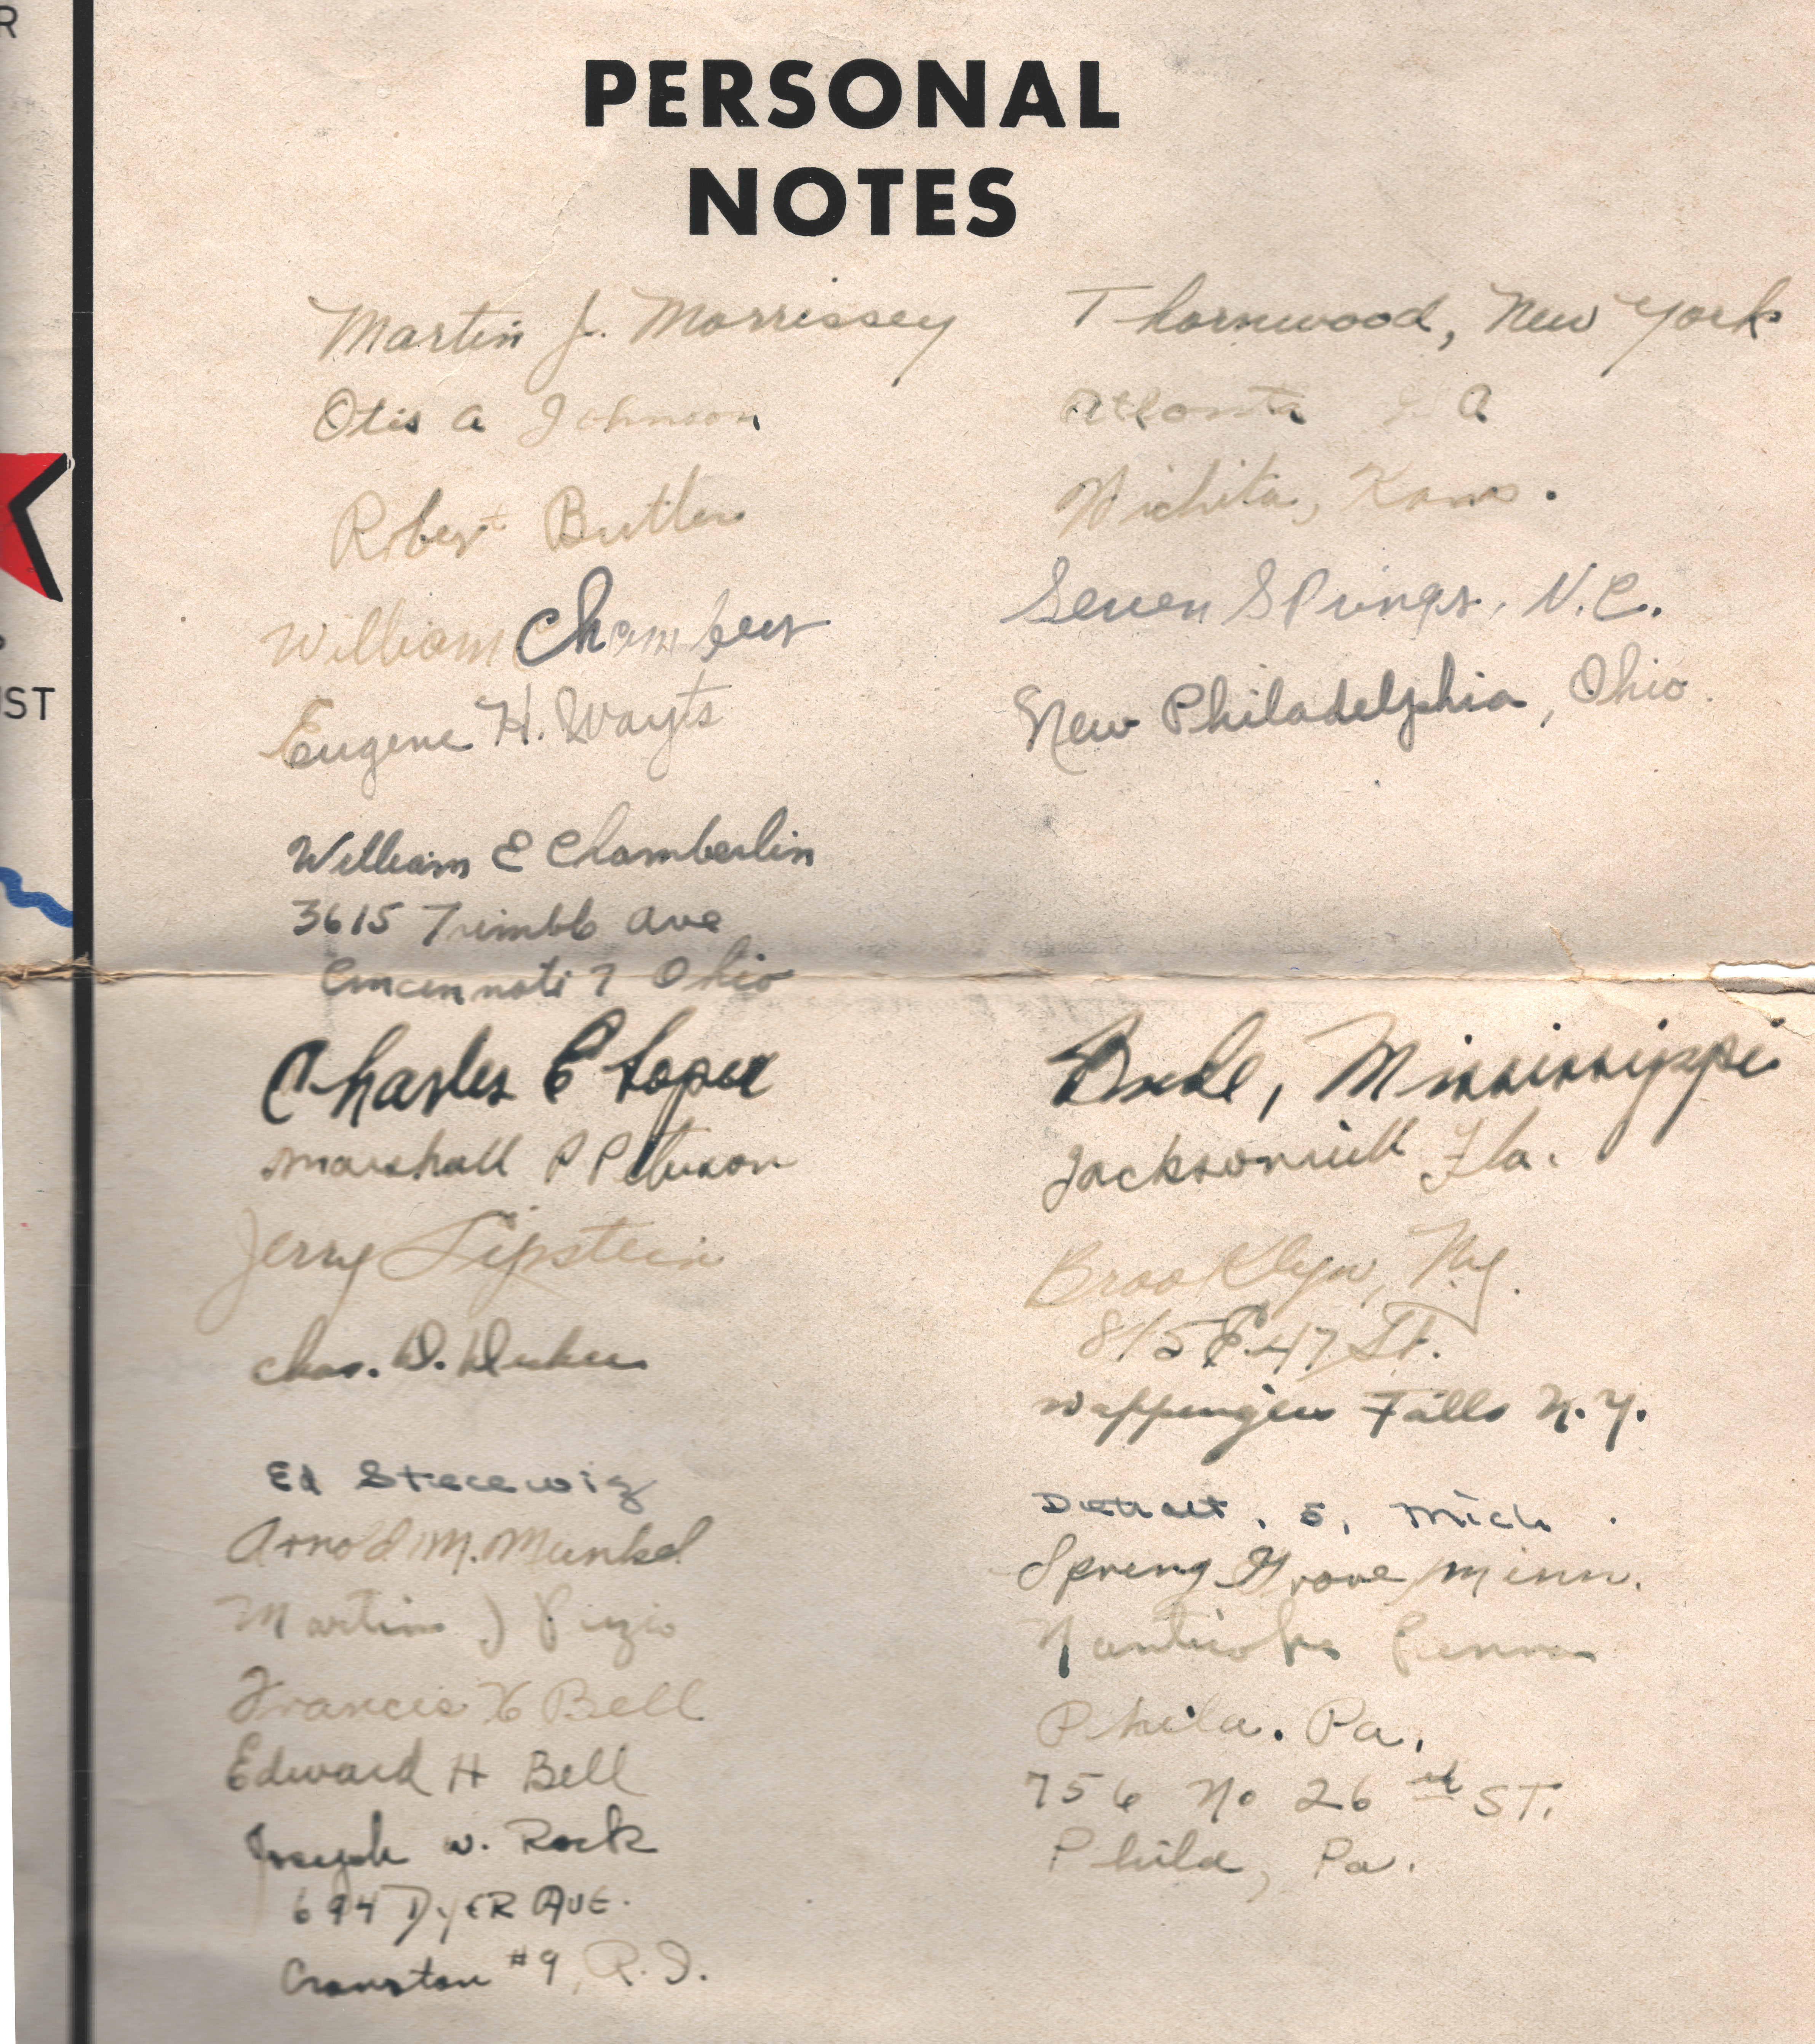 R
PERSONAL
NOTES
Martin J. Morrissey Thornwood, New York
Otis A Johnson Atlanta G A
Robert Butler Wichita, Kans.
William Chambers Seven Springs, N.C.
IST
Eugene H. Wayts New Philadelphia, Ohio.
William E Chamberlin
3615 Trimble Ave
Cincinnati 7 Ohio
Charles E Loper Bude, Mississippi
Marshall P Peterson Jacksonville Fla.
Jerry Lipstein Brooklyn, N.Y.
815 E. 47 St.
Chas. D. Wappingers Falls N.Y.
Ed Detroit, 5, Mich.
Arnold M. Munkel Spring Grove, Minn.
Martin J Nanticoke Penna
Francis X Bell Phila. Pa.
Edward H Bell 756 No 26 ST.
Joseph W. Rock Phila, Pa.
694 DyER AVE.
Cranston #9, R.I.